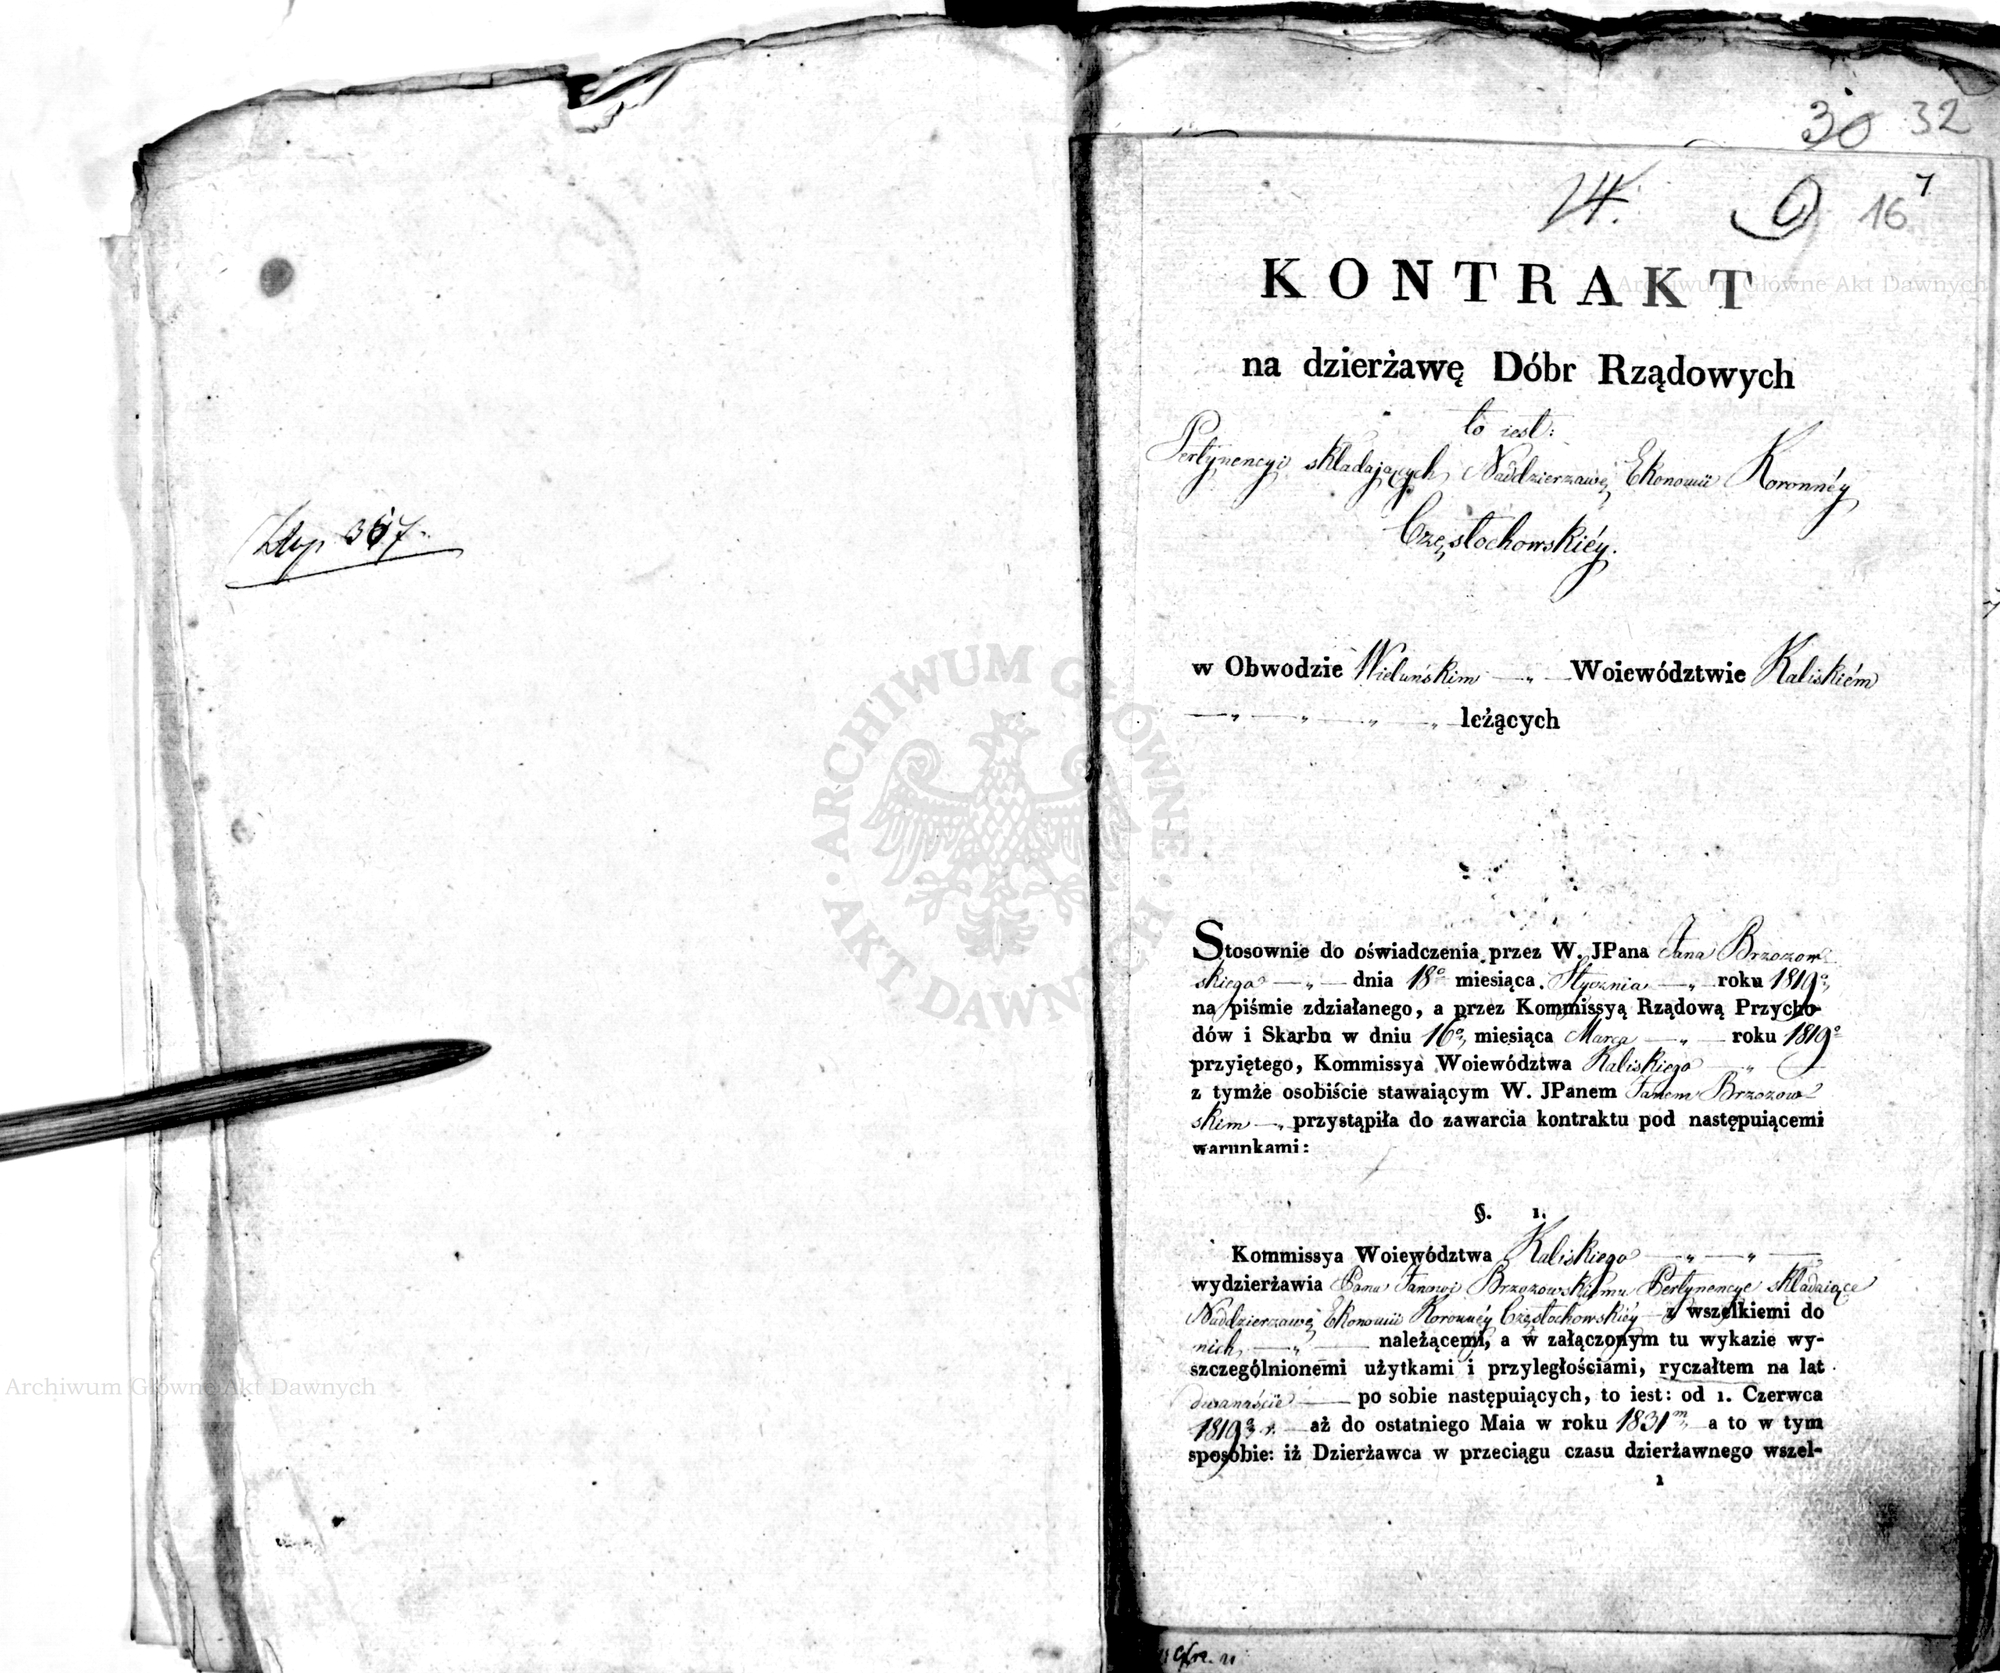 30 32
14. 16 7
KONTRAKT
na dzierżawę Dóbr Rządowych
to iest:
Pertynencyi składających Naddzierzawę Ekonomii Koronnéy
Częstochowskiéy.
w Obwodzie Wieluńskim — „ — Woiewództwie Kaliskiém
— „ — „ — „ — „ leżących
Stosownie do oświadczenia przez W. JPana Jana Brzozow-
skiego — „ — dnia 18º miesiąca Stycznia — „ roku 1819º,
na piśmie zdziałanego, a przez Kommissyą Rządową Przycho-
dów i Skarbu w dniu 16º, miesiąca Marca — „ — roku 1819º
przyiętego, Kommissya Woiewództwa Kaliskiego — „ —
z tymże osobiście stawaiącym W. JPanem Janem Brzozow-
skim — „ przystąpiła do zawarcia kontraktu pod następuiącemi
warunkami:
§. 1.
Kommissya Woiewództwa Kaliskiego — „ — „ —
wydzierżawia Panu Janowi Brzozowskiemu Pertynencye składaiące
Naddzierzawę Ekonomii Koronnéy Częstochowskiéy z wszelkiemi do
nich — „ — należącemi, a w załączonym tu wykazie wy-
szczególnionemi użytkami i przyległościami, ryczałtem na lat
dwanaście — po sobie następuiących, to iest: od 1. Czerwca
1819º r. — aż do ostatniego Maia w roku 1831m, a to w tym
sposobie: iż Dzierżawca w przeciągu czasu dzierżawnego wszel-
1
Archiwum Główne Akt Dawnych
ARCHIWUM GŁÓWNE · AKT DAWNYCH ·
Archiwum Główne Akt Dawnych